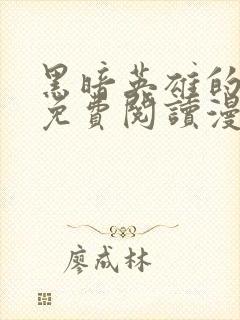 黑暗英雄的
免費閱讀漫
廖成林